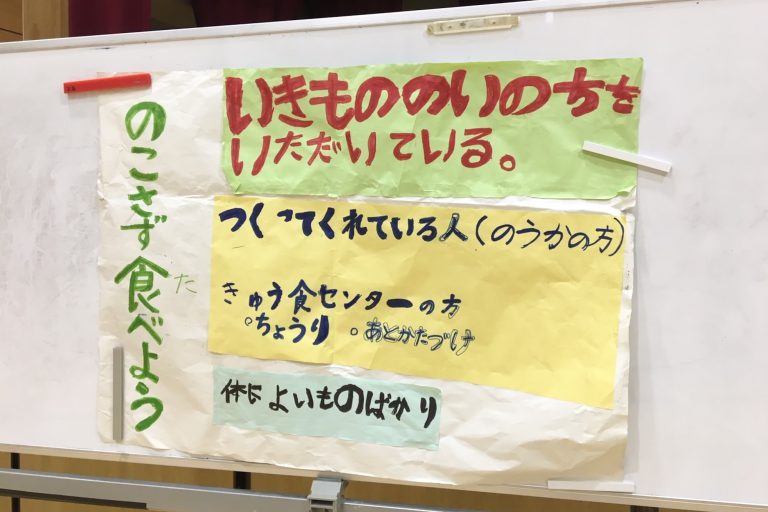 のこさず食べよう
た
いきもののいのちを
いただいている。
つくってくれている人(のうかの方)
きゅう食センターの方
。ちょうり 。あとかたづけ
体によいものばかり